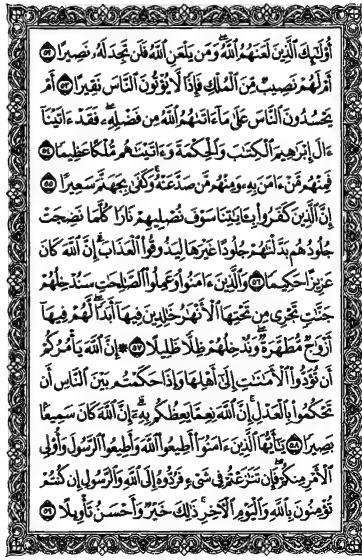 أُوْلَٰٓئِكَ ٱلَّذِينَ لَعَنَهُمُ ٱللَّهُ وَمَن يَلْعَنِ ٱللَّهُ فَلَن تَجِدَ لَهُۥ نَصِيرًا ٥٢
أَمْ لَهُمْ نَصِيبٌ مِّنَ ٱلْمُلْكِ فَإِذًا لَّا يُؤْتُونَ ٱلنَّاسَ نَقِيرًا ٥٣ أَمْ
يَحْسُدُونَ ٱلنَّاسَ عَلَىٰ مَآ ءَاتَىٰهُمُ ٱللَّهُ مِن فَضْلِهِۦ فَقَدْ ءَاتَيْنَآ
ءَالَ إِبْرَٰهِيمَ ٱلْكِتَٰبَ وَٱلْحِكْمَةَ وَءَاتَيْنَٰهُم مُّلْكًا عَظِيمًا ٥٤
فَمِنْهُم مَّنْ ءَامَنَ بِهِۦ وَمِنْهُم مَّن صَدَّ عَنْهُ وَكَفَىٰ بِجَهَنَّمَ سَعِيرًا ٥٥
إِنَّ ٱلَّذِينَ كَفَرُوا۟ بِـَٔايَٰتِنَا سَوْفَ نُصْلِيهِمْ نَارًا كُلَّمَا نَضِجَتْ
جُلُودُهُم بَدَّلْنَٰهُمْ جُلُودًا غَيْرَهَا لِيَذُوقُوا۟ ٱلْعَذَابَ إِنَّ ٱللَّهَ كَانَ
عَزِيزًا حَكِيمًا ٥٦ وَٱلَّذِينَ ءَامَنُوا۟ وَعَمِلُوا۟ ٱلصَّٰلِحَٰتِ سَنُدْخِلُهُمْ
جَنَّٰتٍ تَجْرِى مِن تَحْتِهَا ٱلْأَنْهَٰرُ خَٰلِدِينَ فِيهَآ أَبَدًا لَّهُمْ فِيهَآ
أَزْوَٰجٌ مُّطَهَّرَةٌ وَنُدْخِلُهُمْ ظِلًّا ظَلِيلًا ٥٧ ۞ إِنَّ ٱللَّهَ يَأْمُرُكُمْ
أَن تُؤَدُّوا۟ ٱلْأَمَٰنَٰتِ إِلَىٰٓ أَهْلِهَا وَإِذَا حَكَمْتُم بَيْنَ ٱلنَّاسِ أَن
تَحْكُمُوا۟ بِٱلْعَدْلِ إِنَّ ٱللَّهَ نِعِمَّا يَعِظُكُم بِهِۦٓ إِنَّ ٱللَّهَ كَانَ سَمِيعًۢا
بَصِيرًا ٥٨ يَٰٓأَيُّهَا ٱلَّذِينَ ءَامَنُوٓا۟ أَطِيعُوا۟ ٱللَّهَ وَأَطِيعُوا۟ ٱلرَّسُولَ وَأُو۟لِى
ٱلْأَمْرِ مِنكُمْ فَإِن تَنَٰزَعْتُمْ فِى شَىْءٍ فَرُدُّوهُ إِلَى ٱللَّهِ وَٱلرَّسُولِ إِن كُنتُمْ
تُؤْمِنُونَ بِٱللَّهِ وَٱلْيَوْمِ ٱلْءَاخِرِ ذَٰلِكَ خَيْرٌ وَأَحْسَنُ تَأْوِيلًا ٥٩